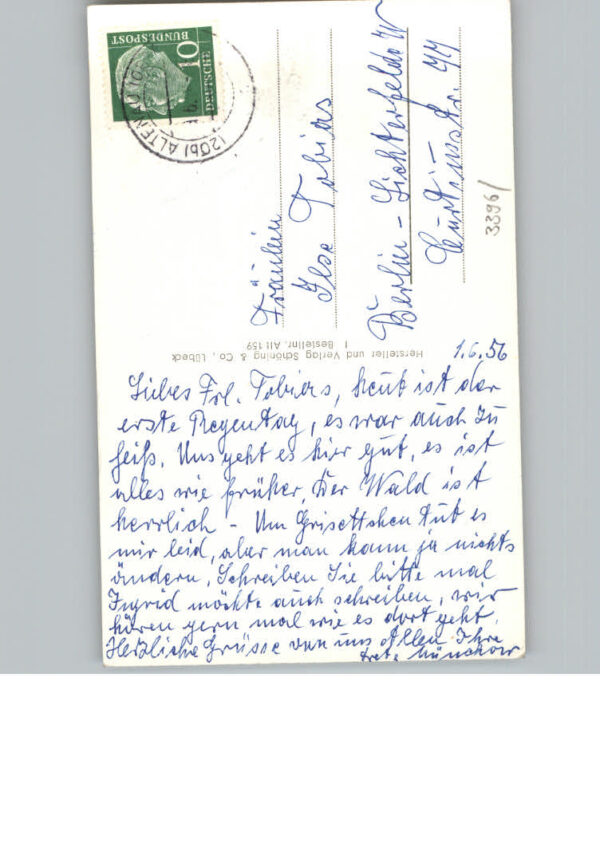 10
DEUTSCHE
BUNDESPOST
(20b) ALTENAU (O
Fräulein
Ilse Tobias
Berlin - Lichterfelde W
Curtiusstr. 44
3396/
Hersteller und Verlag Schöning & Co., Lübeck
I Bestellnr. Alt 159
1.6.56
Liebes Frl. Tobias, heut ist der
erste Regentag, es war auch zu
heiß. Uns geht es hier gut, es ist
alles wie früher, der Wald ist
herrlich - Um Grisettchen tut es
mir leid, aber man kann ja nichts
ändern. Schreiben Sie bitte mal
Ingrid möchte auch schreiben, wir
hören gern mal wie es dort geht.
Herzliche Grüsse von uns Allen Ihre